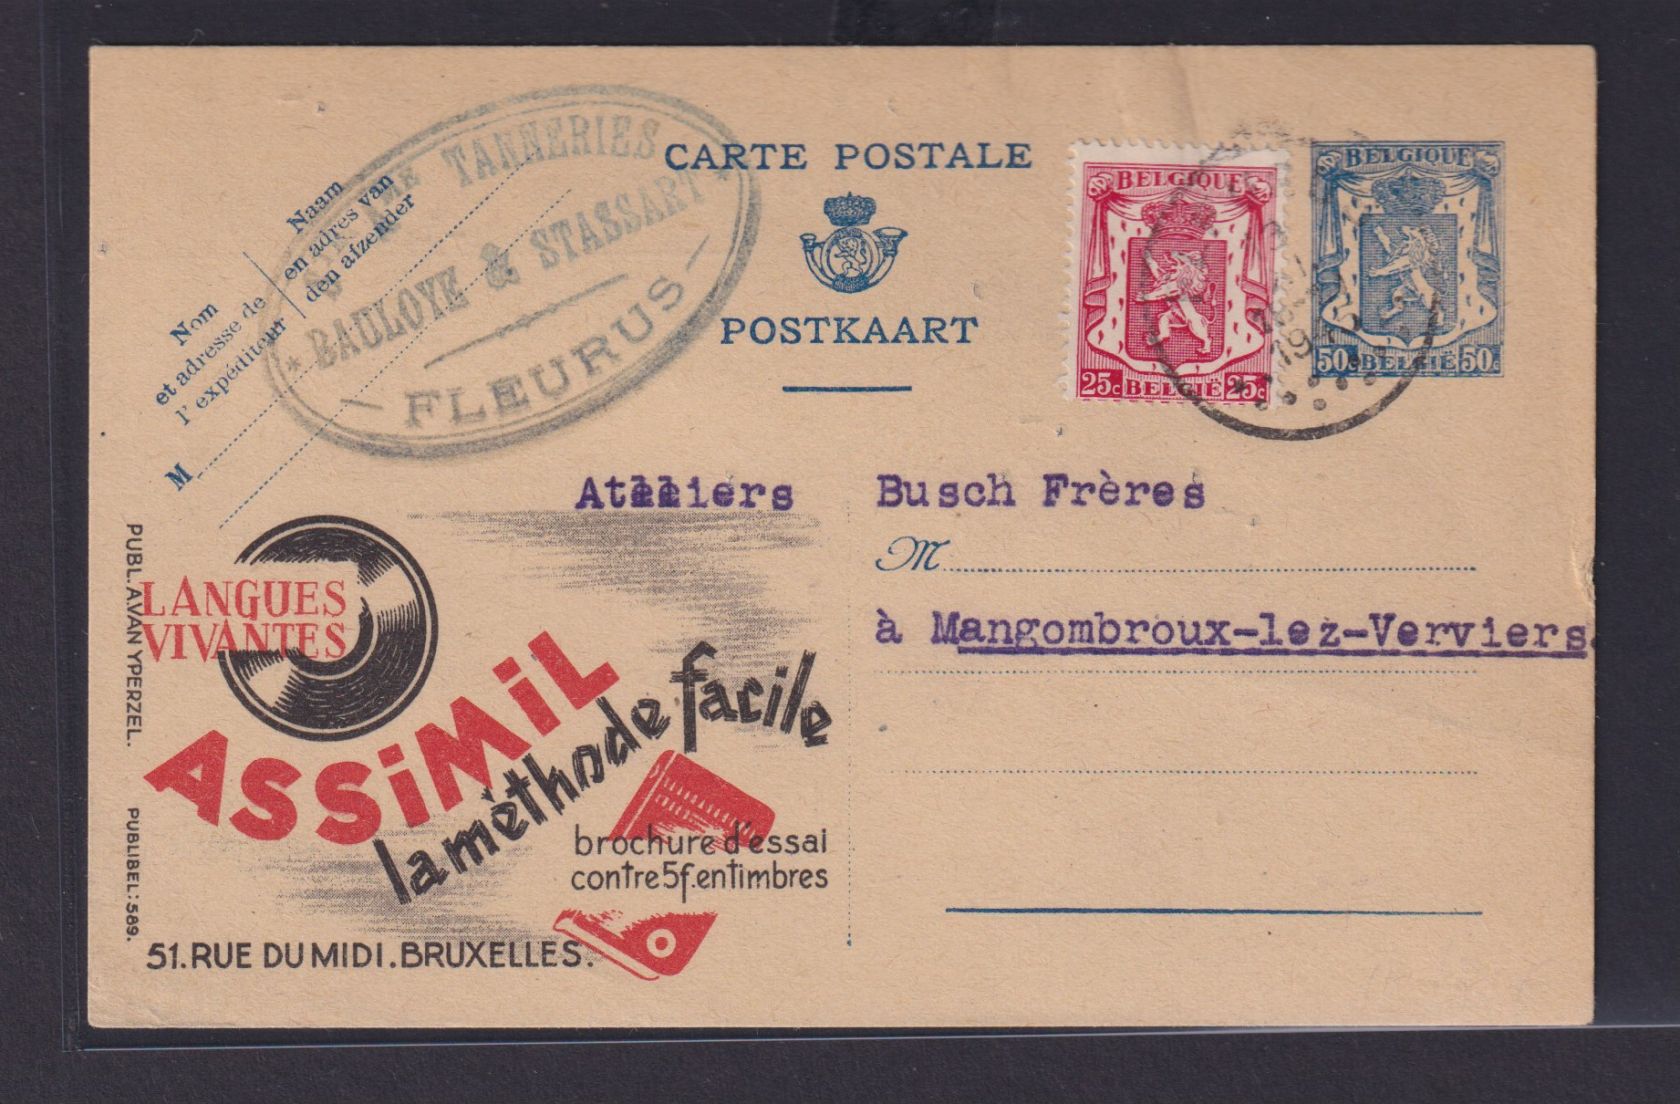 CARTE POSTALE
POSTKAART
Nom
et adresse de
l'expéditeur
Naam
en adres van
den afzender
M
TANNERIES
BAULOYE & STASSART
FLEURUS
BELGIQUE
25c BELGIË 25c
BELGIQUE
50c BELGIË 50c
Ateliers Busch Frères
M
à Mangombroux-lez-Verviers.
PUBL. A. VAN YPERZEL.
PUBLIBEL: 589.
LANGUES
VIVANTES
ASSiMiL
la méthode facile
brochure d'essai
contre 5f. en timbres
51. RUE DU MIDI. BRUXELLES.